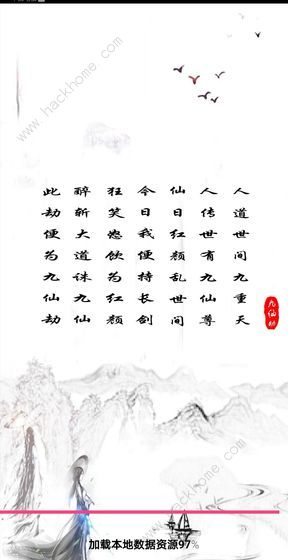 人道世间九重天
人传世有九仙尊
仙日红颜乱世间
今日我便持长剑
狂笑怒饮为红颜
醉斩大道诛九仙
此劫便为九仙劫
九仙劫
加载本地数据资源97%
www.hackhome.com